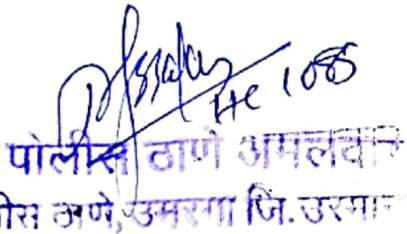 HC 1086
पोलीस ठाणे अमलदार
पोलीस ठाणे, उमरगा जि. उस्मा